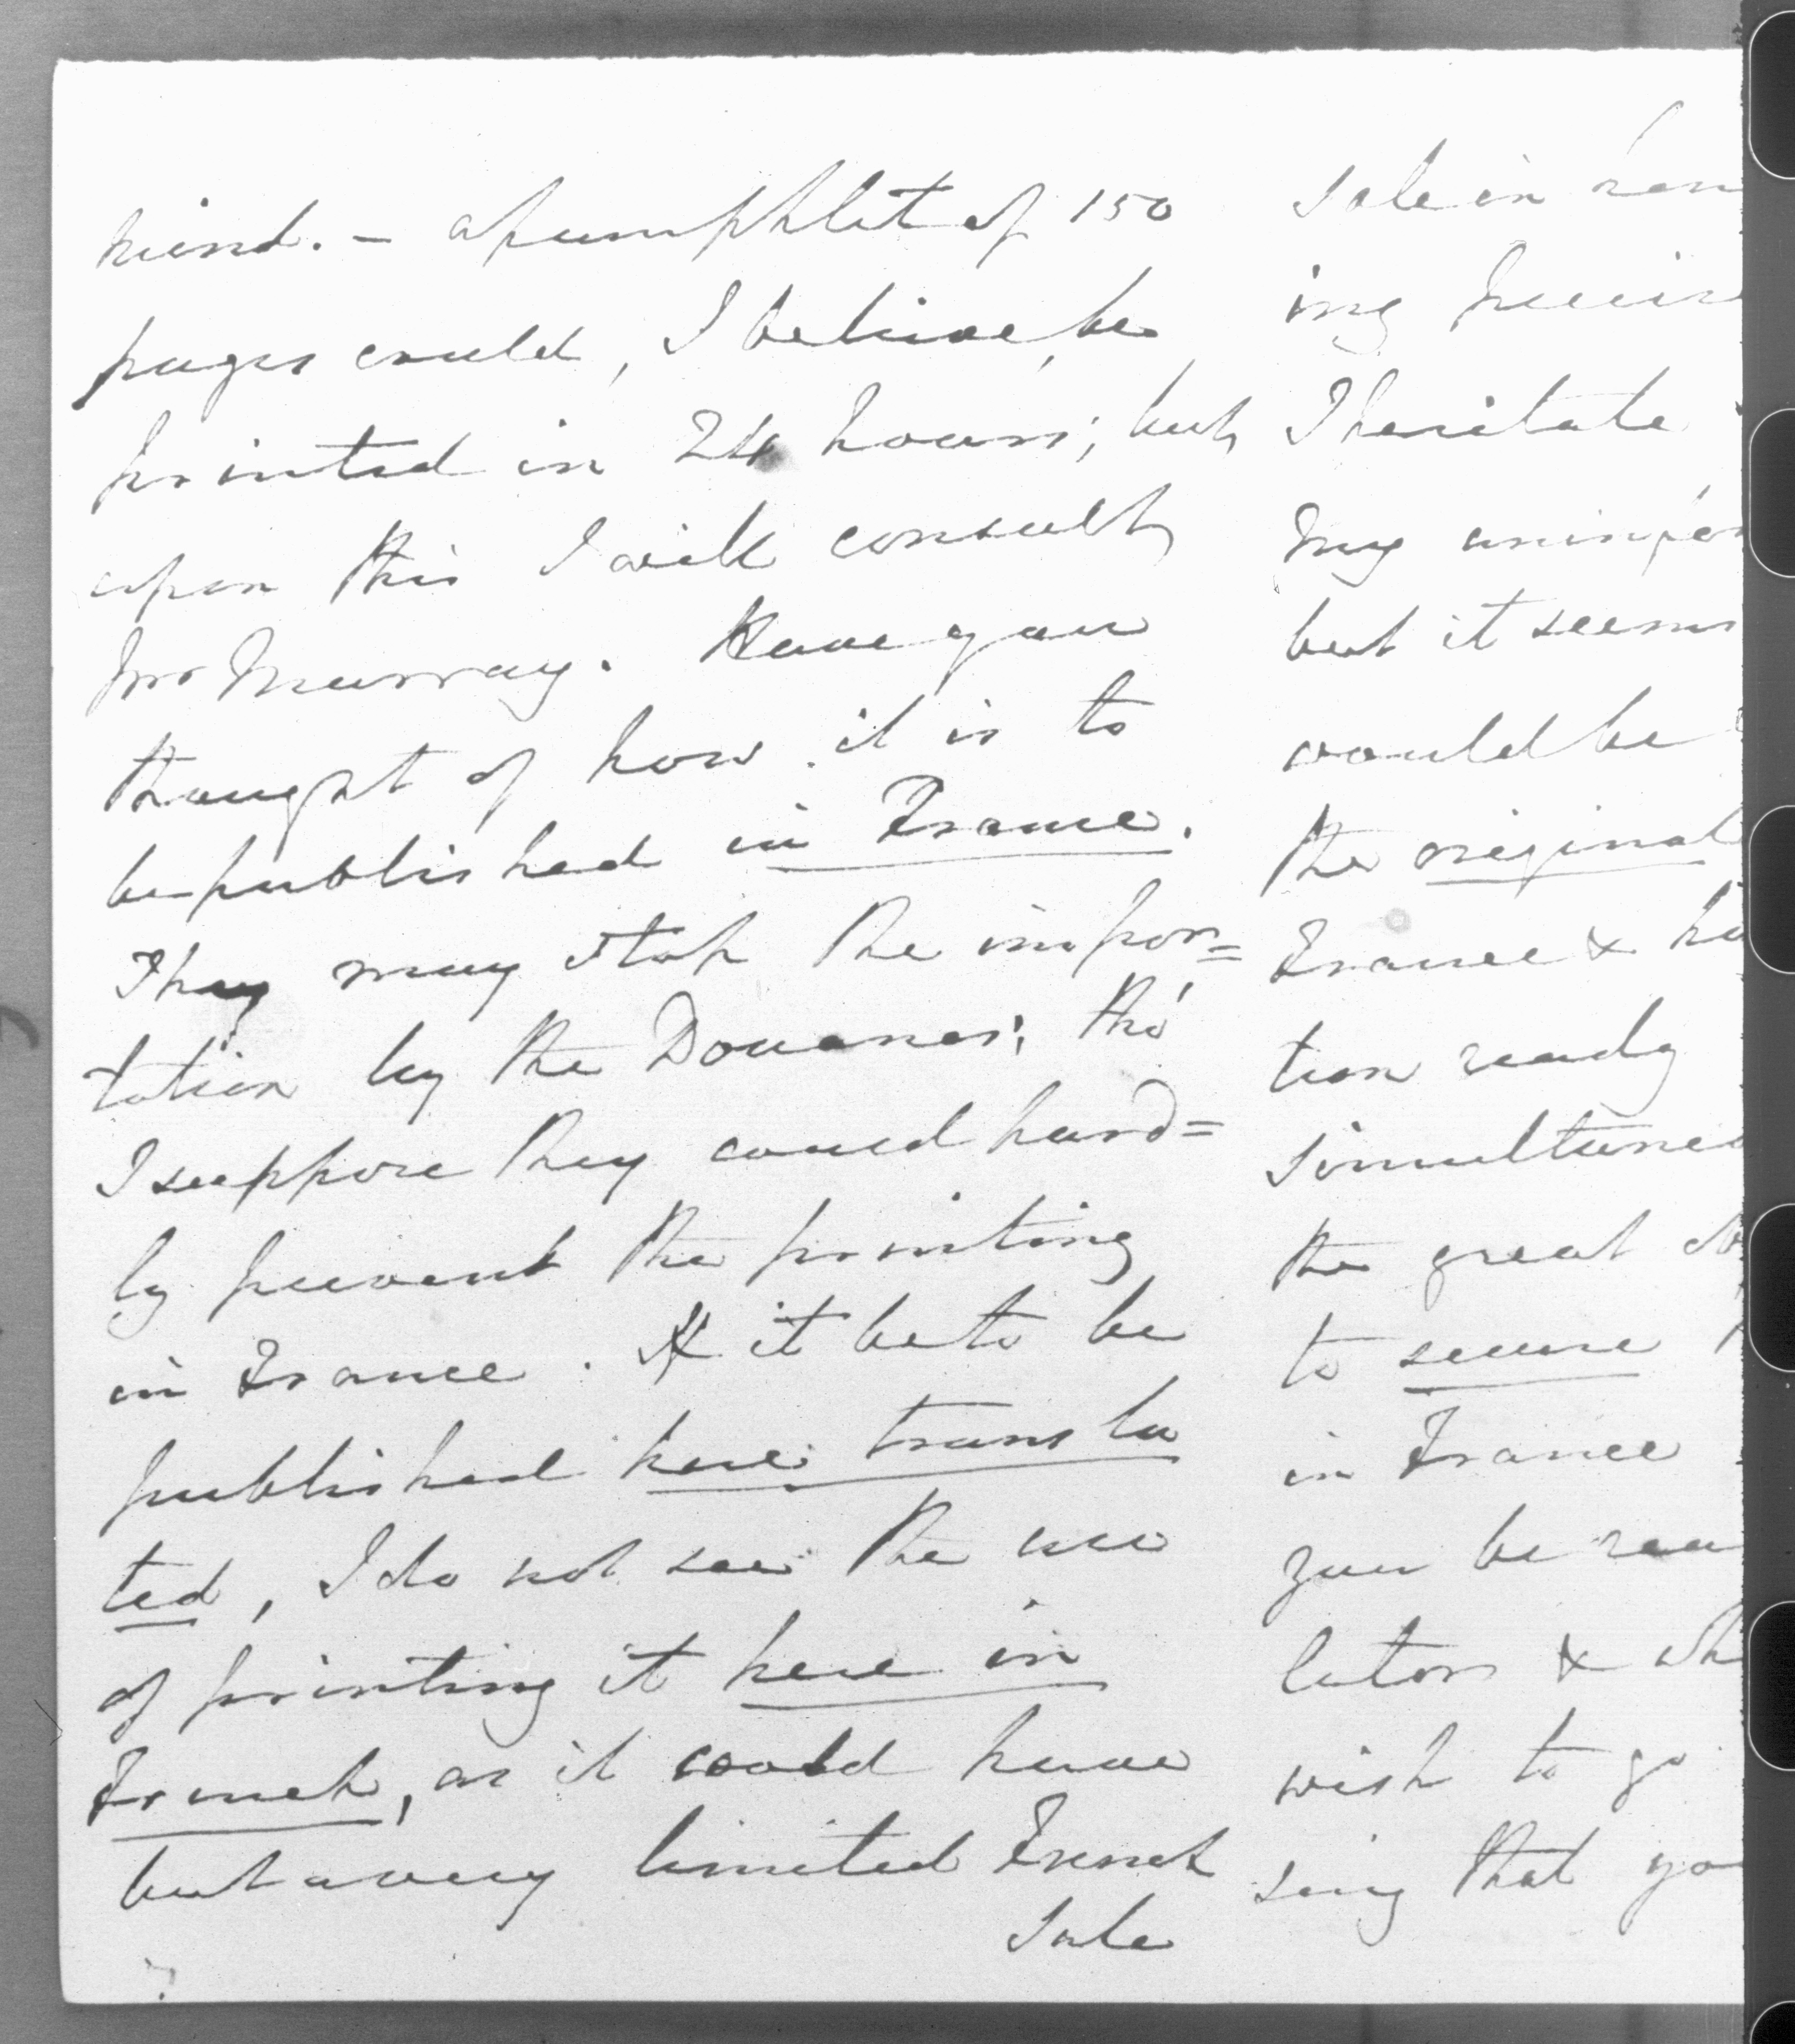 kind. – a pamphlet of 150
pages could, I believe, be
printed in 24 hours; but
upon this I will consult
Mr Murray. Have you
thought of how it is to
be published in France.
They may stop the impor=
tation by the Douanes; tho'
I suppose they could hard=
ly prevent the printing
in France. If it be to be
published here transla
ted, I do not see the use
of printing it here in
French, as it could have
but a very limited French
Sale
Sale in
ing
I hesitate
my
but it seems
would be
the original
France &
tion ready
simultaneo
the great
to secure
in France
be rea
lators &
wish to go
sing that yo